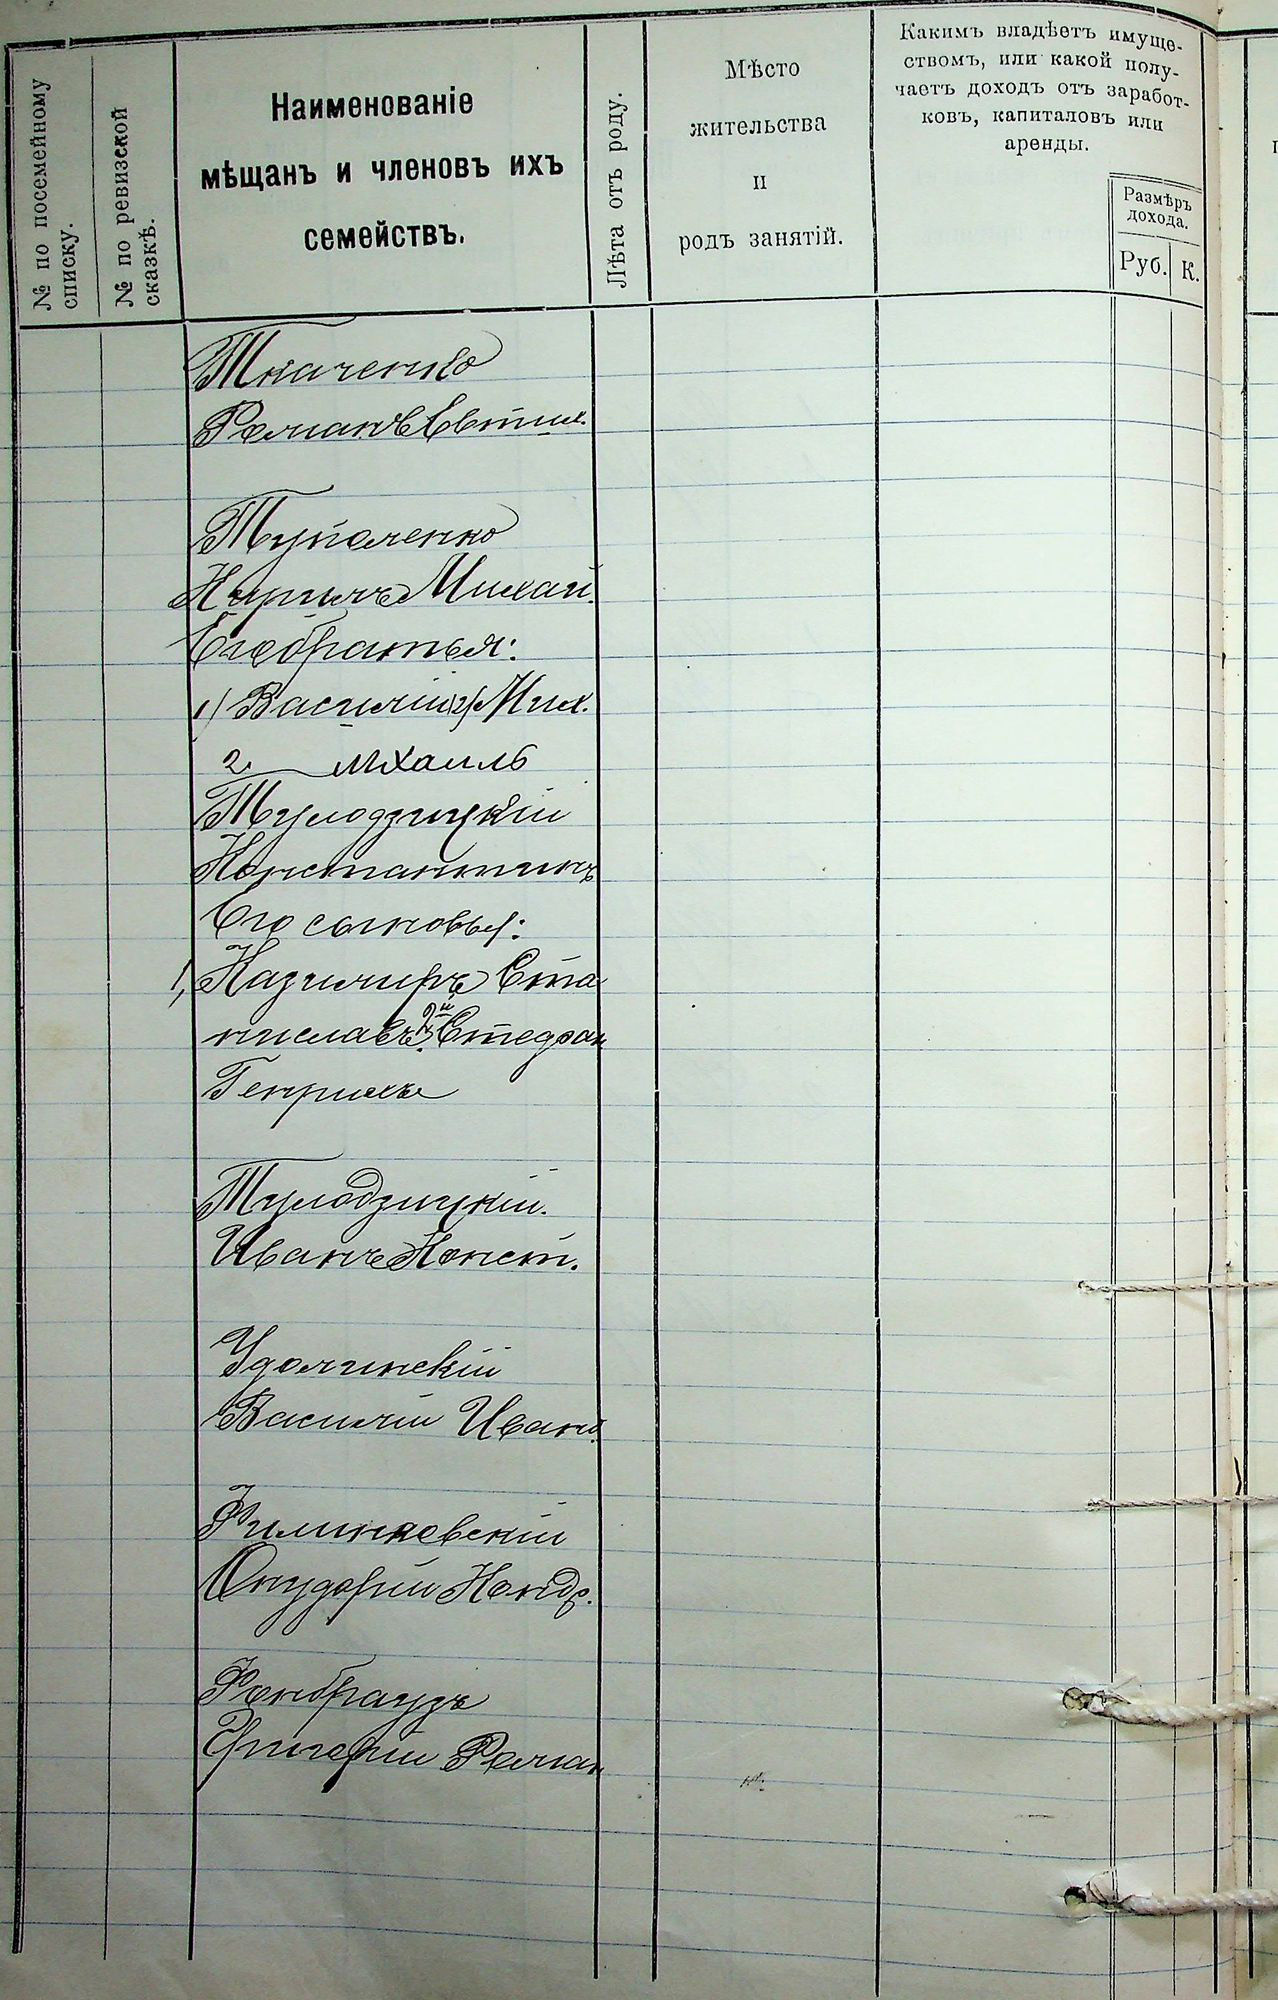 № по посемейному
списку.
№ по ревизской
сказкѣ.
Наименованіе
мѣщанъ и членовъ ихъ
семействъ.
Лѣта отъ роду.
Мѣсто
жительства
и
родъ занятій.
Какимъ владѣетъ имуще-
ствомъ, или какой полу-
чаетъ доходъ отъ заработ-
ковъ, капиталовъ или
аренды.
Размѣръ
дохода.
Руб.
К.
Ткаченко
Романъ Евтих.
Туполенко
Кирилъ Михай.
Его братья:
1) Василій Мих.
2 Михаилъ
Тулодзицкій
Константинъ
Его сыновья:
1, Казимиръ Ста
ниславъ 2й Стефан
Генрихъ
Тулодзицкій.
Иванъ Конст.
Удолинскій
Василій Иван.
Филинковскій
Онуфрій Кондр.
Фенбраузъ
Григорій Роман